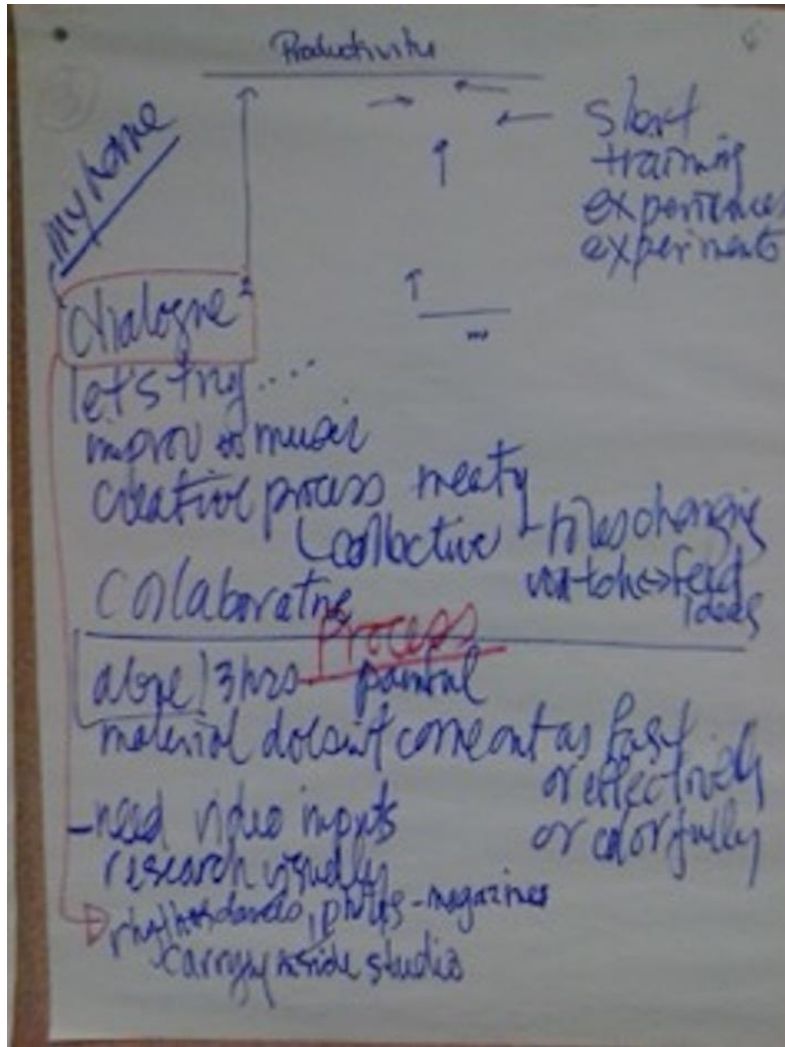 Productivity
3
my home
short
training
experiences
experiment
dialogue
let's try....
improv to music
creative process meaty
collective - roles changing
watch <-> feed
ideas
Collaborative
process
alone / 3 hrs painful
material doesn't come out as fast
or effectively
or colorfully
- need video inputs
research visually
photos - magazines
carry inside studio